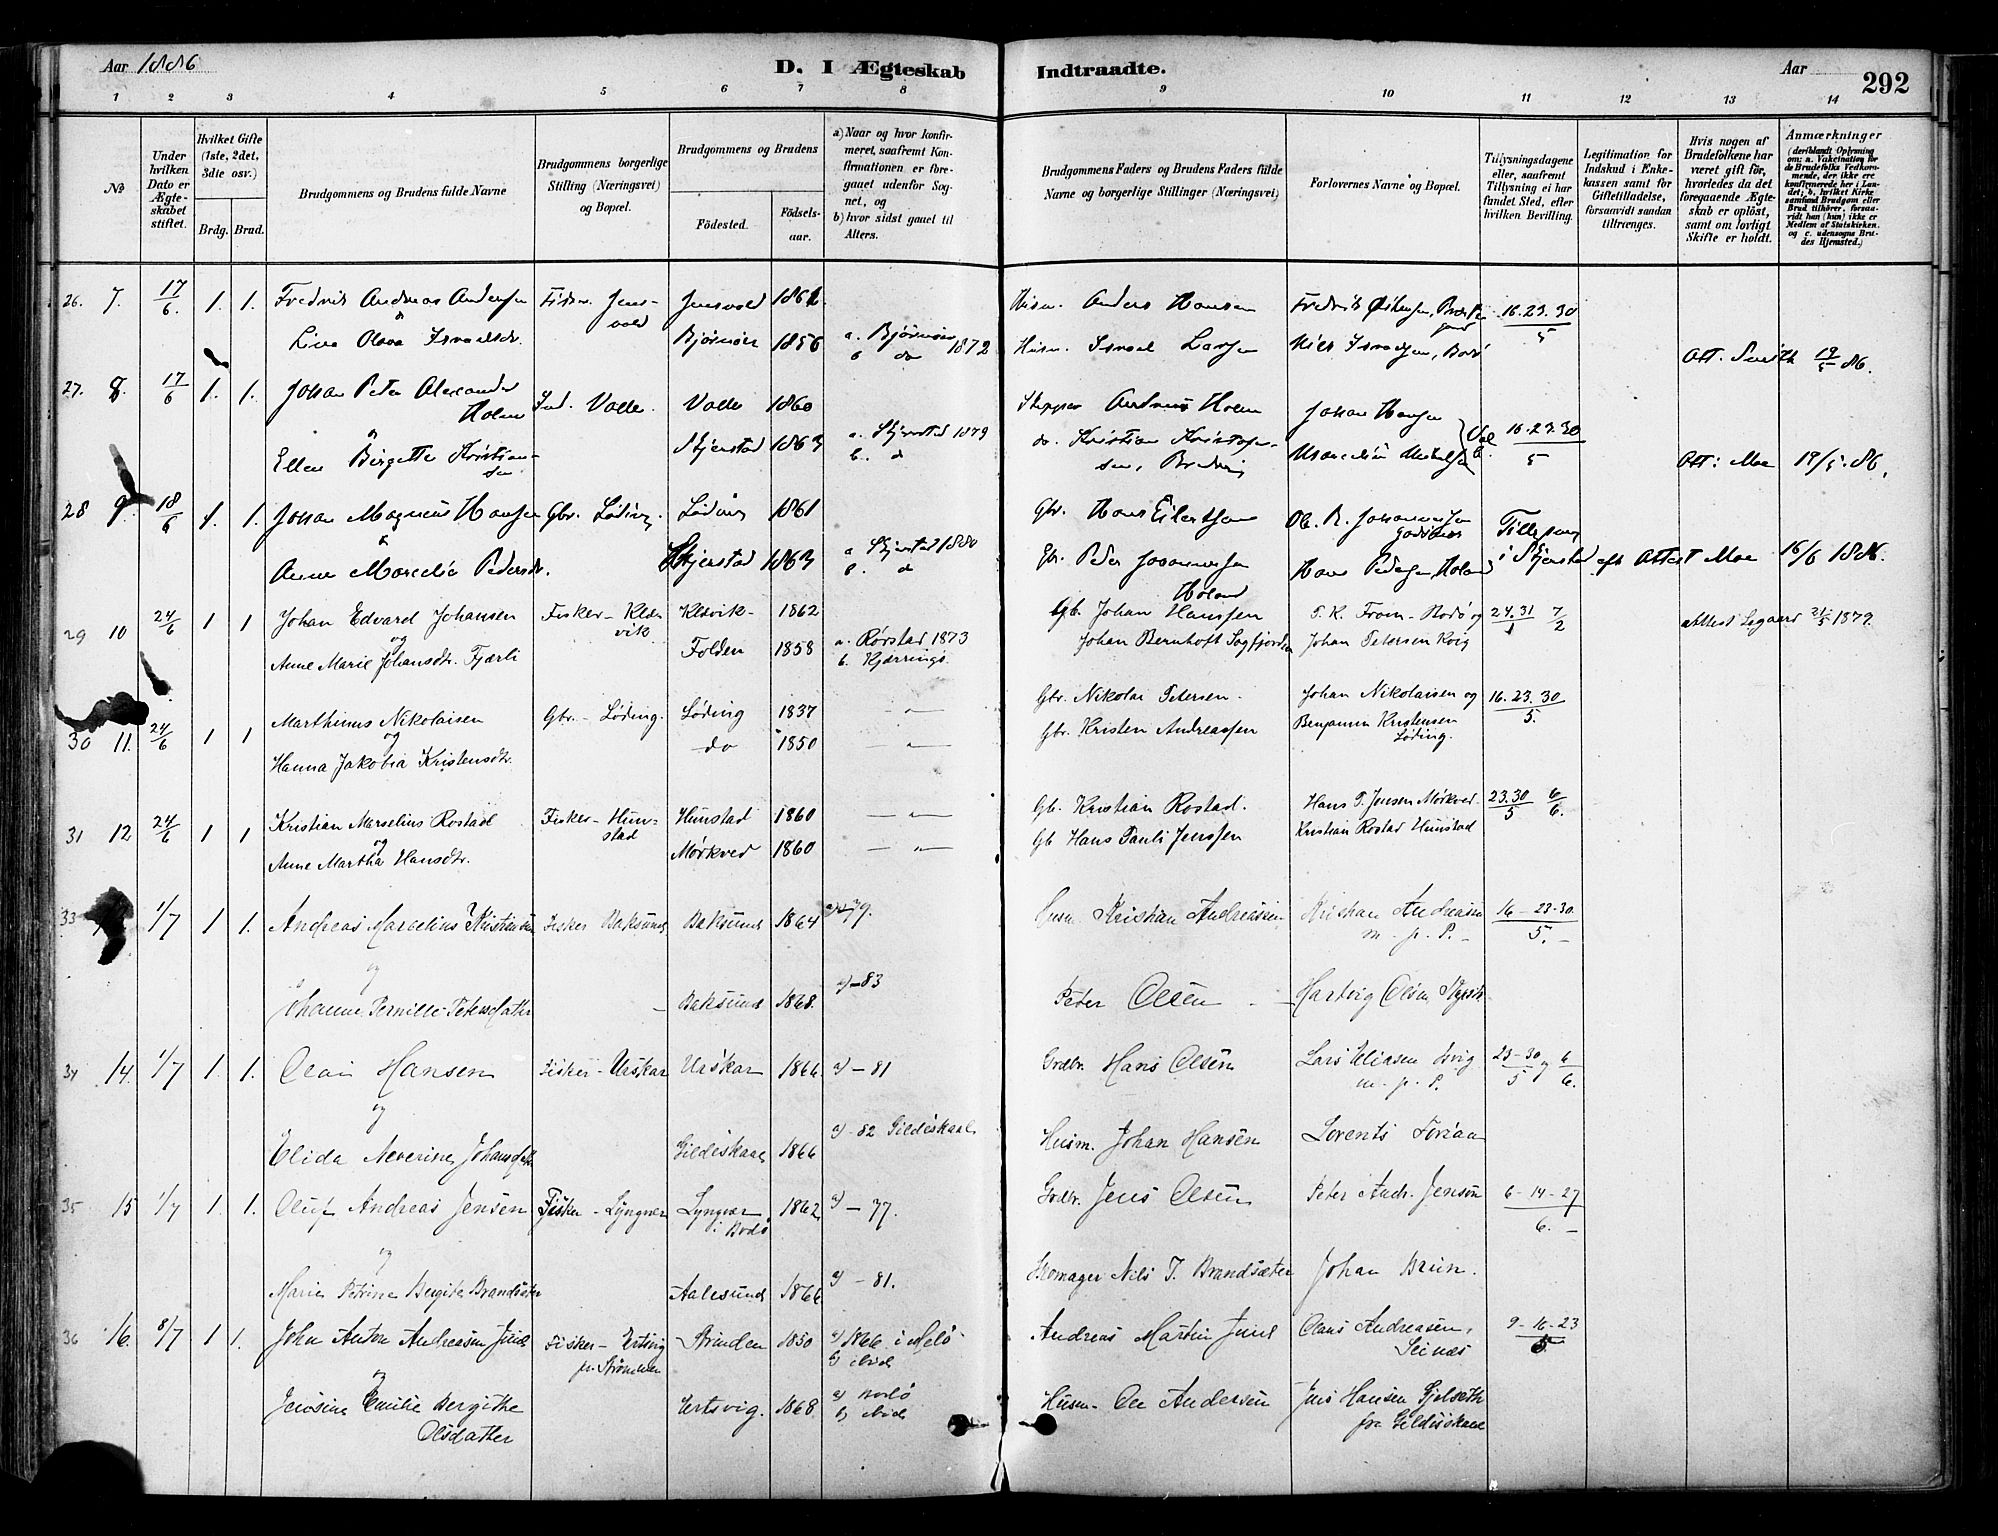 Aar 1886
D. I Ægteskab Indtraadte.
Aar 292
1 2 3 4 5 6 7 8 9 10 11 12 13 14
No
Under hvilken Dato er Ægteskabet stiftet.
Hvilket Gifte (1ste, 2det, 3die osv.)
Brdg. Brud.
Brudgommens og Brudens fulde Navne
Brudgommens borgerlige Stilling (Næringsvei) og Bopæl.
Brudgommens og Brudens
Fødested.
Fødselsaar.
a) Naar og hvor konfirmeret, saafremt Konfirmationen er foregaaet udenfor Sognet, og
b) hvor sidst gaaet til Alters.
Brudgommens Faders og Brudens Faders fulde Navne og borgerlige Stillinger (Næringsvei)
Forlovernes Navne og Bopæl.
Tillysningsdagene eller, saafremt Tillysning ei har fundet Sted, efter hvilken Bevilling.
Legitimation for Indskud i Enkekassen samt for Giftetilladelse, forsaavidt saadan tiltrænges.
Hvis nogen af Brudefolkene har været gift før, hvorledes da det foregaaende Ægteskab er opløst, samt om lovligt Skifte er holdt.
Anmærkninger (deriblandt Oplysning om: a. Vakcination for de Brudefolks Vedkommende, der ikke ere konfirmerede her i Landet; b. hvilket Kirkesamfund Brudgom eller Brud tilhører, forsaavidt han (hun) ikke er Medlem af Statskirken, og c. udensogns Brudes Hjemsted.)
26. 7. 17/6. 1. 1. Fredrik Andreas Andersen Fisker. Jensvold Jensvold 1862 Husm. Anders Hansen 16.23.30/5
Lina Olava Israelsdr. Bjørnør 1856 a. Bjørnør 1872 b. do Husm. Israel Larsen Nils Israelsen, Bodø Att. Smith 19/5 86.
27. 8. 17/6 1. 1. Johan Peter Alexander Holm Ind. Valle. Valle 1860 Skipper Andreas Holm Johan Hansen 16.23.30/5
Ellen Birgitte Kristiansen Skjerstad 1863 a. Skjerstad 1879 b. d do. Kristian Kristofersen, Breding Att: Moe 19/5. 86.
28 9. 18/6 1. 1. Johan Magnus Hansen Gbr. Løding. Løding 1861 Gbr. Hans Eilertsen Ole R. Johannessen Tillysning
Anne Marcelie Pedersdr. Skjerstad 1863 a. Skjerstad 1880 b. d Gbr. Peder Johannessen Høland Hans Pedersen, Høland i Skjerstad eft Attest Moe 16/6 1886.
29 10 24/6 1 1 Johan Edvard Johansen Fisker - Klevvik Klevvik - 1862 Gb. Johan Hanssen P. K. From - Bodø og 24.31/1 7/2 Attest Segaard 21/5 1879.
og
Anne Marie Johansdtr. Fjærli Folden 1858 a. Rørstad 1873 b. Kjærrings. Johan Bernhoft Sagfjorden Johan Petersen Koig
30 11. 24/6 1 1 Marthinus Nikolaisen Gbr. - Løding. Løding 1837 — " — Gbr. Nikolai Petersen. Johan Nikolaisen og 16.23.30/5.
og
Hanna Jakobia Kristensdtr. — do 1850 — " — Gbr. Kristen Andreassen Benjamin Kristensen Løding.
31 12 24/6 1 1 Kristian Marselius Rostad Fisker - Hunstad Hunstad 1860 — " — Gb. Kristian Rostad. Hans P. Jensen Mørkved. 23.30/5 6/6.
og
Anne Martha Hansdtr. Mørkved 1860 — " — Gb Hans Pauli Jenssen Kristian Rostad Hunstad
33 1/7 1 1. Andreas Marcelius Kristiansen Fisker Baksund Baksund 1864 79. Husm. Kristian Andreassen Kristian Andreassen m. p. P. 16-23-30/5.
og
Johanne Pernille Petersdatter Baksund 1868. a) - 83 Peter Olsen Hartvig Olsen
34 14. 1/7 1. 1. Olai Hansen Fisker - Urskar Urskar 1866 a) - 81 Grdbr. Hans Olsen Lars Eliasen m. p. P. 23-30/5 og 6/6.
og
Elida Neverine Johansdatter Gildeskaal 1866 a) - 82 Gildeskaal Husm. Johan Hansen Lorents
35 15 1/7 1. 1. Oluf Andreas Jensen Fisker - Lyngvær Lyngvær i Bodø 1862 a) - 77. Grdbr. Jens Olsen Peter Andr. Jensen 6-14-27/6.
og
Marie Petrine Bergite Brandsæter Aalesund 1866 a) - 81. Skomager Nils T. Brandsæter Johan Brun.
36 16. 8/7 1 1. John Anton Andreasen Juul Fisker - Ertsvig pr. Strømmen Strinden 1850 a) 1866 i Melø b) ibid Andreas Martin Juul Claus Andreasen, Seines 9-16-23/5
og
Jensine Emilie Bergithe Olsdatter Ertsvig. 1868 a) Bodø b) ibid Husm. Ole Andersen Jens Hansen Gjelseth fra Gildeskaal